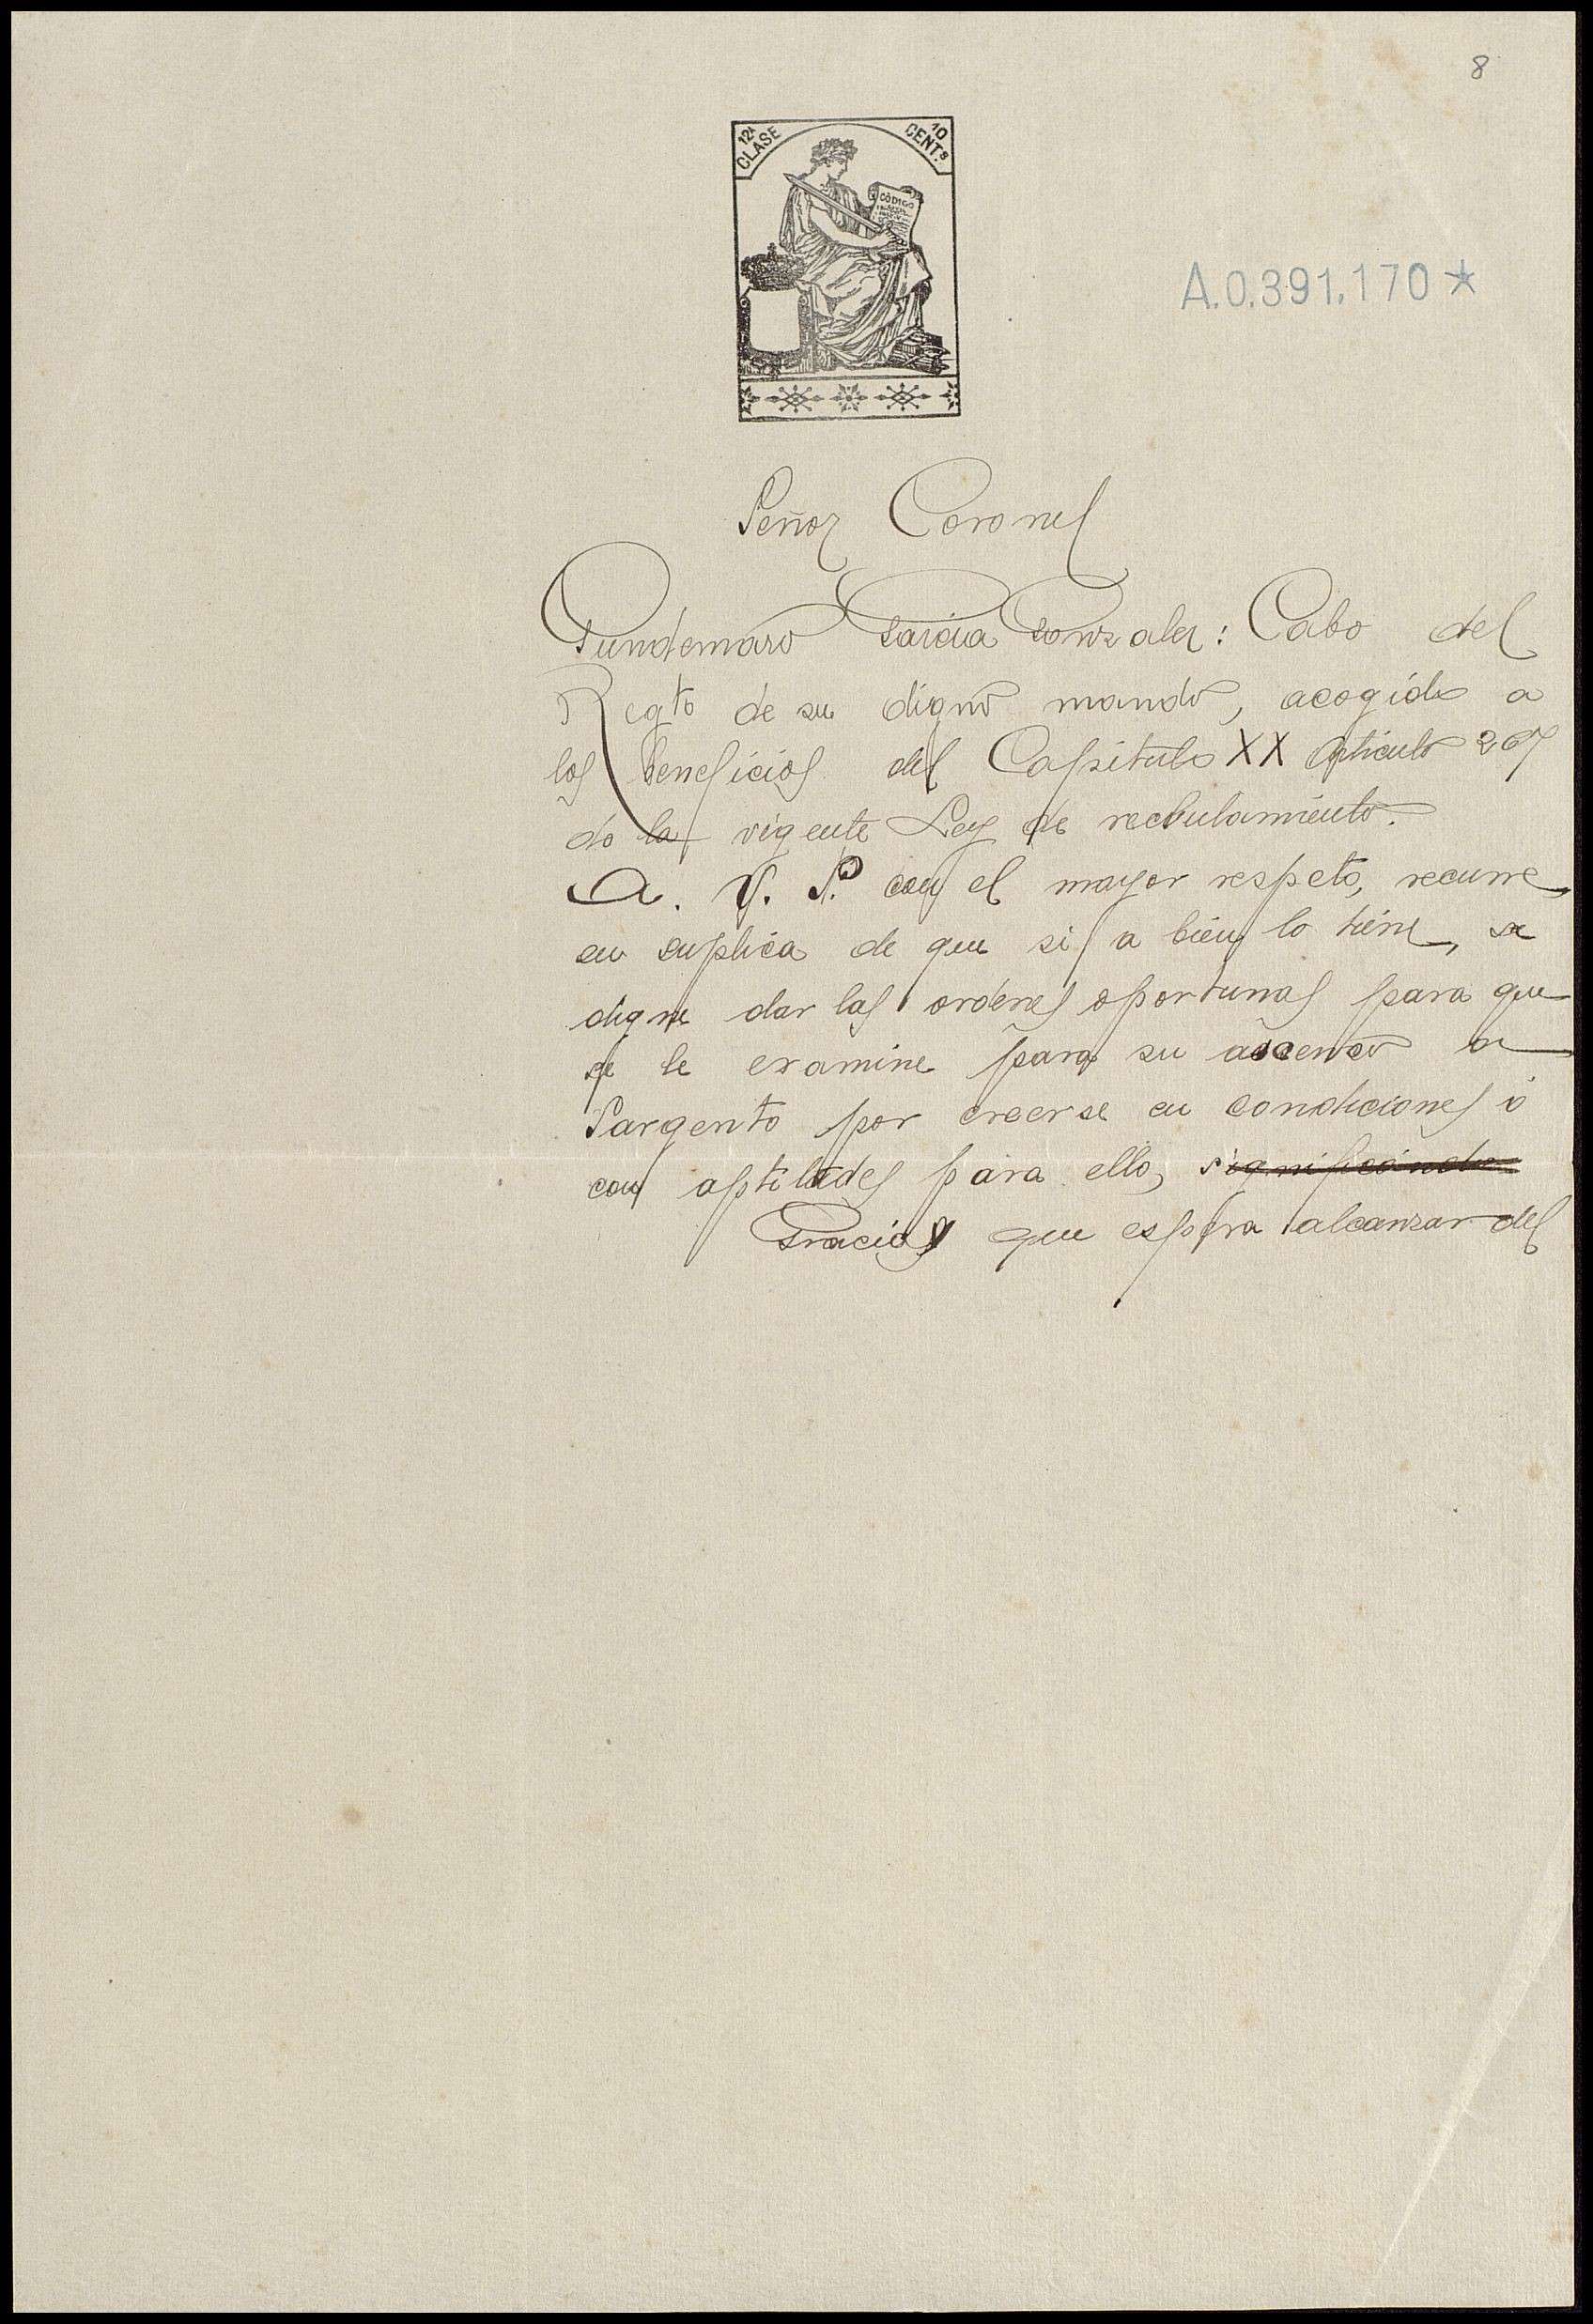 8
12ª CLASE
10 CENT.s
CÓDIGO
A.0.391.170*
Señor Coronel
Gundemaro Garcia Gonzalez: Cabo del
Regto de su digno mando, acogido a
los beneficios del Capitulo XX Articulo 267
do la vigente Ley de reclutamiento.
A. V. S. con el mayor respeto, recurre
en suplica de que si a bien lo tiene, se
digne dar las ordenes oportunas para que
se le examine para su ascenso a
Sargento por creerse en condiciones ó
con aptitudes para ello, significando
Gracia que espera alcanzar del